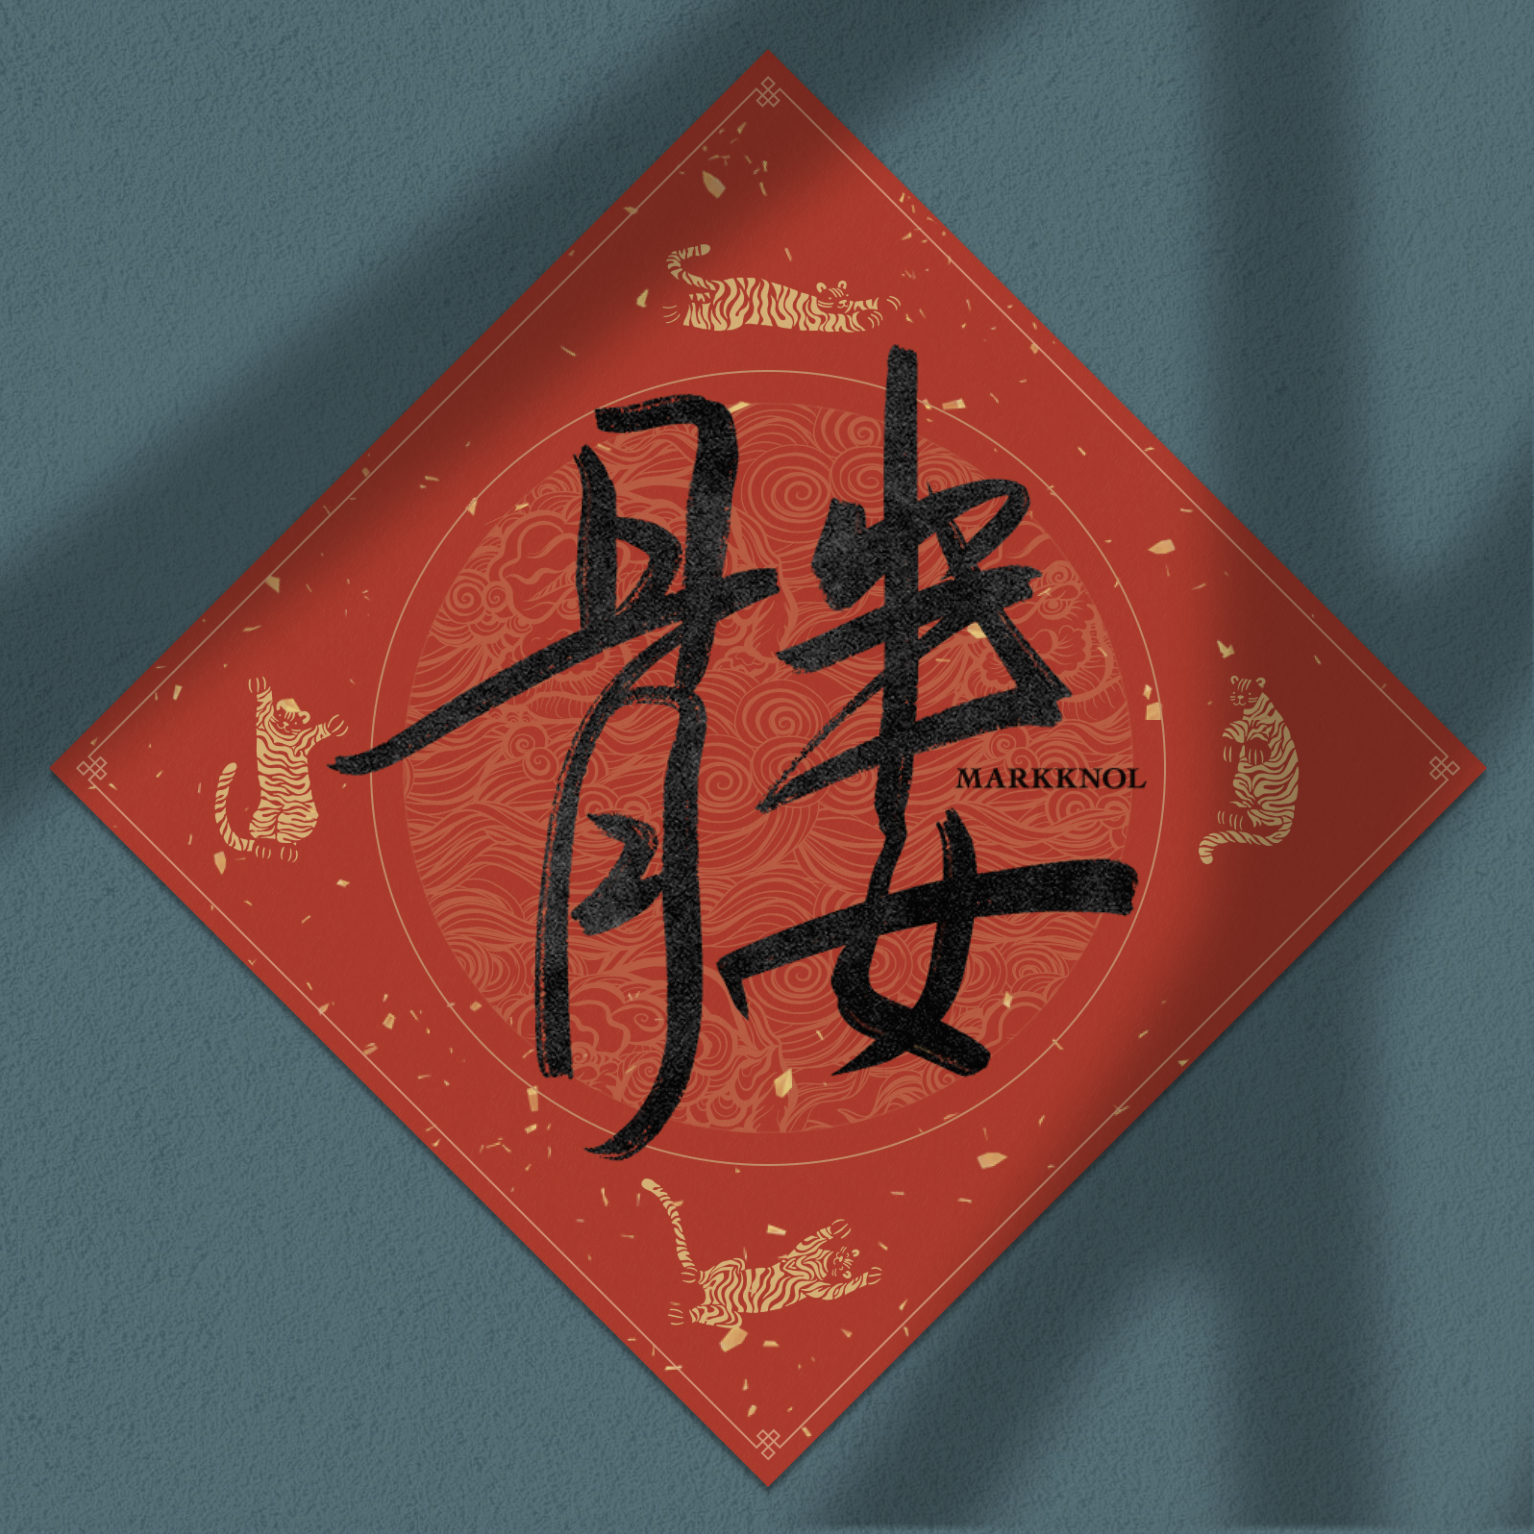 髏
MARKKNOL